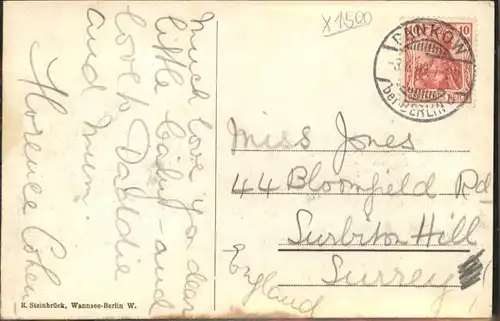 x1500
PANKOW
bei BERLIN
10
Much love you dear
little Saint - and
love to Dadddie
and Mum:
Florence Cohen
Miss Jones
44 Bloomfield Rd
Surbiton Hill
Surrey
England
R. Steinbrück, Wannsee-Berlin W.